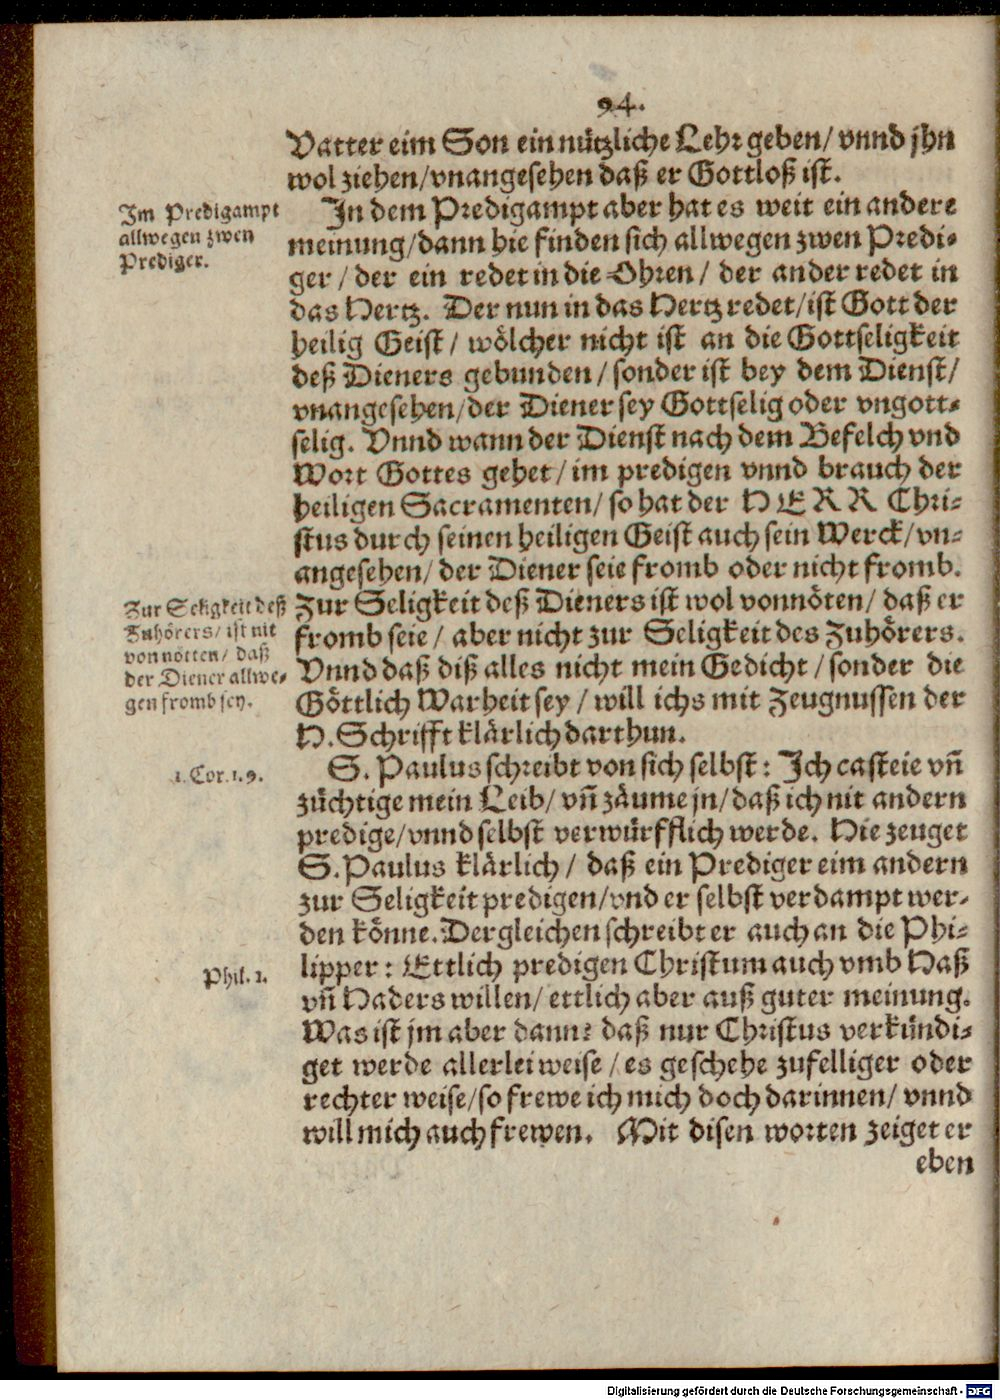 94.
Vatter eim Son ein nützliche Lehr geben/ vnnd jhn
wol ziehen/vnangesehen daß er Gottloß ist.
Im Predigampt
allwegen zwen
Prediger.
In dem Predigampt aber hat es weit ein andere
meinung/dann hie finden sich allwegen zwen Predi-
ger / der ein redet in die Ohren/ der ander redet in
das Hertz. Der nun in das Hertz redet/ist Gott der
heilig Geist/ wölcher nicht ist an die Gottseligkeit
deß Dieners gebunden/sonder ist bey dem Dienst/
vnangesehen/der Diener sey Gottselig oder vngott-
selig. Vnnd wann der Dienst nach dem Befelch vnd
Wort Gottes gehet/im predigen vnnd brauch der
heiligen Sacramenten/ so hat der HERR Chri-
stus durch seinen heiligen Geist auch sein Werck/vn-
angesehen/der Diener seie fromb oder nicht fromb.
Zur Seligkeit deß
Zuhörers/ ist nit
von nötten/ daß
der Diener allwe-
gen fromb sey.
Zur Seligkeit deß Dieners ist wol vonnöten/ daß er
fromb seie/ aber nicht zur Seligkeit des Zuhörers.
Vnnd daß diß alles nicht mein Gedicht/sonder die
Göttlich Warheit sey/ will ichs mit Zeugnussen der
H.Schrifft klärlich darthun.
1. Cor. 1. 9.
S. Paulus schreibt von sich selbst: Ich casteie vñ
züchtige mein Leib/ vñ zäume jn/daß ich nit andern
predige/vnnd selbst verwürfflich werde. Hie zeuget
S.Paulus klärlich/ daß ein Prediger eim andern
zur Seligkeit predigen/vnd er selbst verdampt wer-
den könne.Dergleichen schreibt er auch an die Phi-
Phil. 1.
lipper: Ettlich predigen Christum auch vmb Haß
vñ Haders willen/ ettlich aber auß guter meinung.
Was ist jm aber dann? daß nur Christus verkündi-
get werde allerlei weise/es geschehe zufelliger oder
rechter weise/so frewe ich mich doch darinnen/ vnnd
will mich auch frewen. Mit disen worten zeiget er
eben
Digitalisierung gefördert durch die Deutsche Forschungsgemeinschaft - DFG